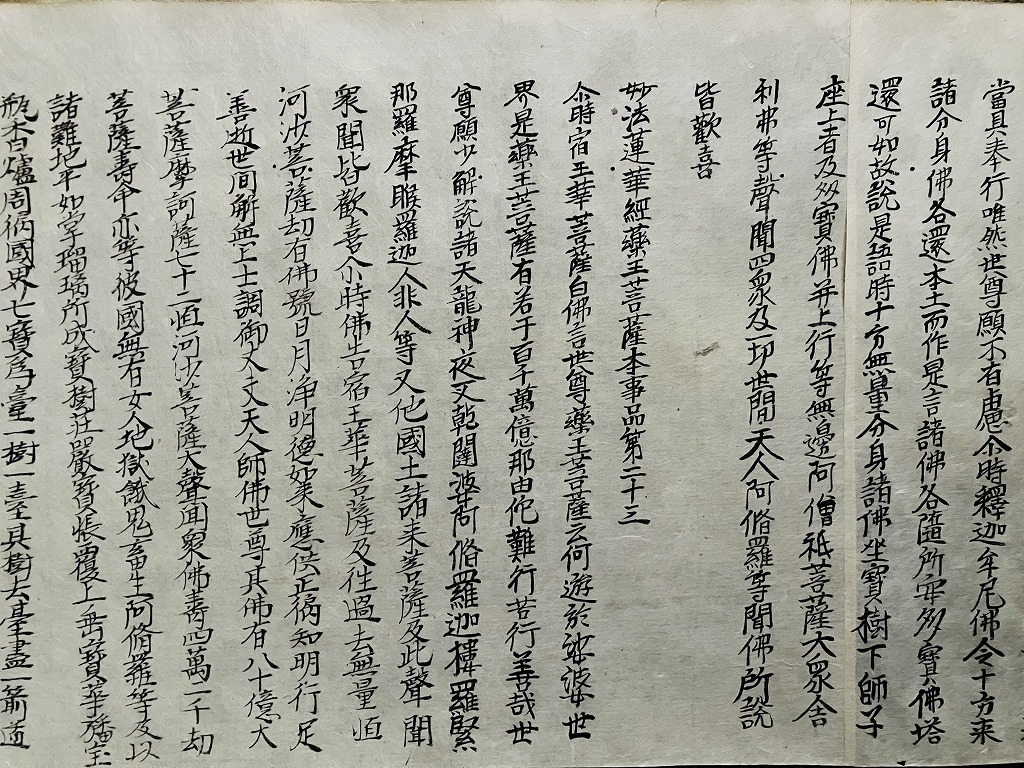 當具奉行唯然世尊願不有慮尒時釋迦牟尼佛令十方來
諸分身佛各還本土而作是言諸佛各隨所安多寶佛塔
還可如故說是語時十方無量分身諸佛坐寶樹下師子
座上者及多寶佛并上行等無邊阿僧祇菩薩大眾舍
利弗等聲聞四眾及一切世間天人阿脩羅等聞佛所說
皆歡喜
妙法蓮華經藥王菩薩本事品第二十三
尒時宿王華菩薩白佛言世尊藥王菩薩云何遊於娑婆世
界是藥王菩薩有若干百千萬億那由佗難行苦行善哉世
尊願少解說諸天龍神夜叉乾闥婆阿脩羅迦樓羅緊
那羅摩睺羅迦人非人等又他國土諸来菩薩及此聲聞
衆聞皆歡喜尒時佛告宿王華菩薩及往過去無量恒
河沙菩薩劫有佛號日月淨明德如来應供正徧知明行足
善逝世间解無上士調御丈夫天人師佛世尊其佛有八十億大
菩薩摩訶薩七十二恒河沙菩薩大聲聞衆佛壽四萬二千劫
菩薩壽命亦等彼國無有女人地獄餓鬼畜生阿脩羅等及以
諸難地平如掌瑠璃所成寶樹莊嚴寶帳覆上垂寶華旛寶
瓶香爐周徧國界七寶為臺一樹一臺其樹去臺盡一箭道